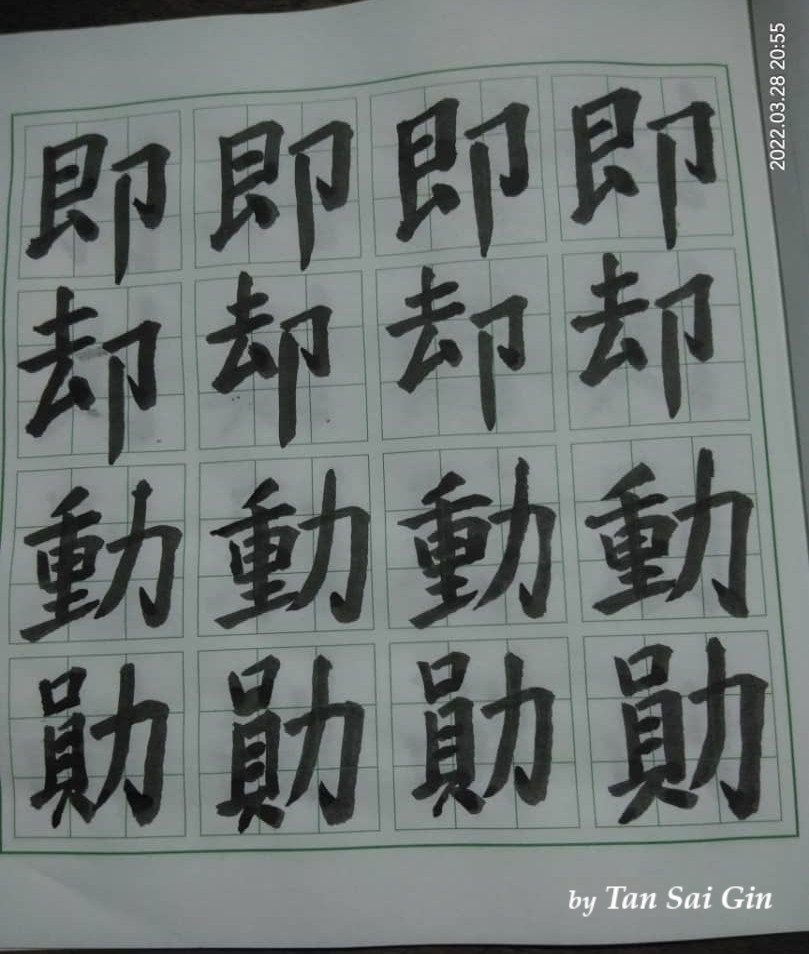 2022.03.28 20:55
即即即即
却却却却
動動動動
勛勛勛勛
by Tan Sai Gin